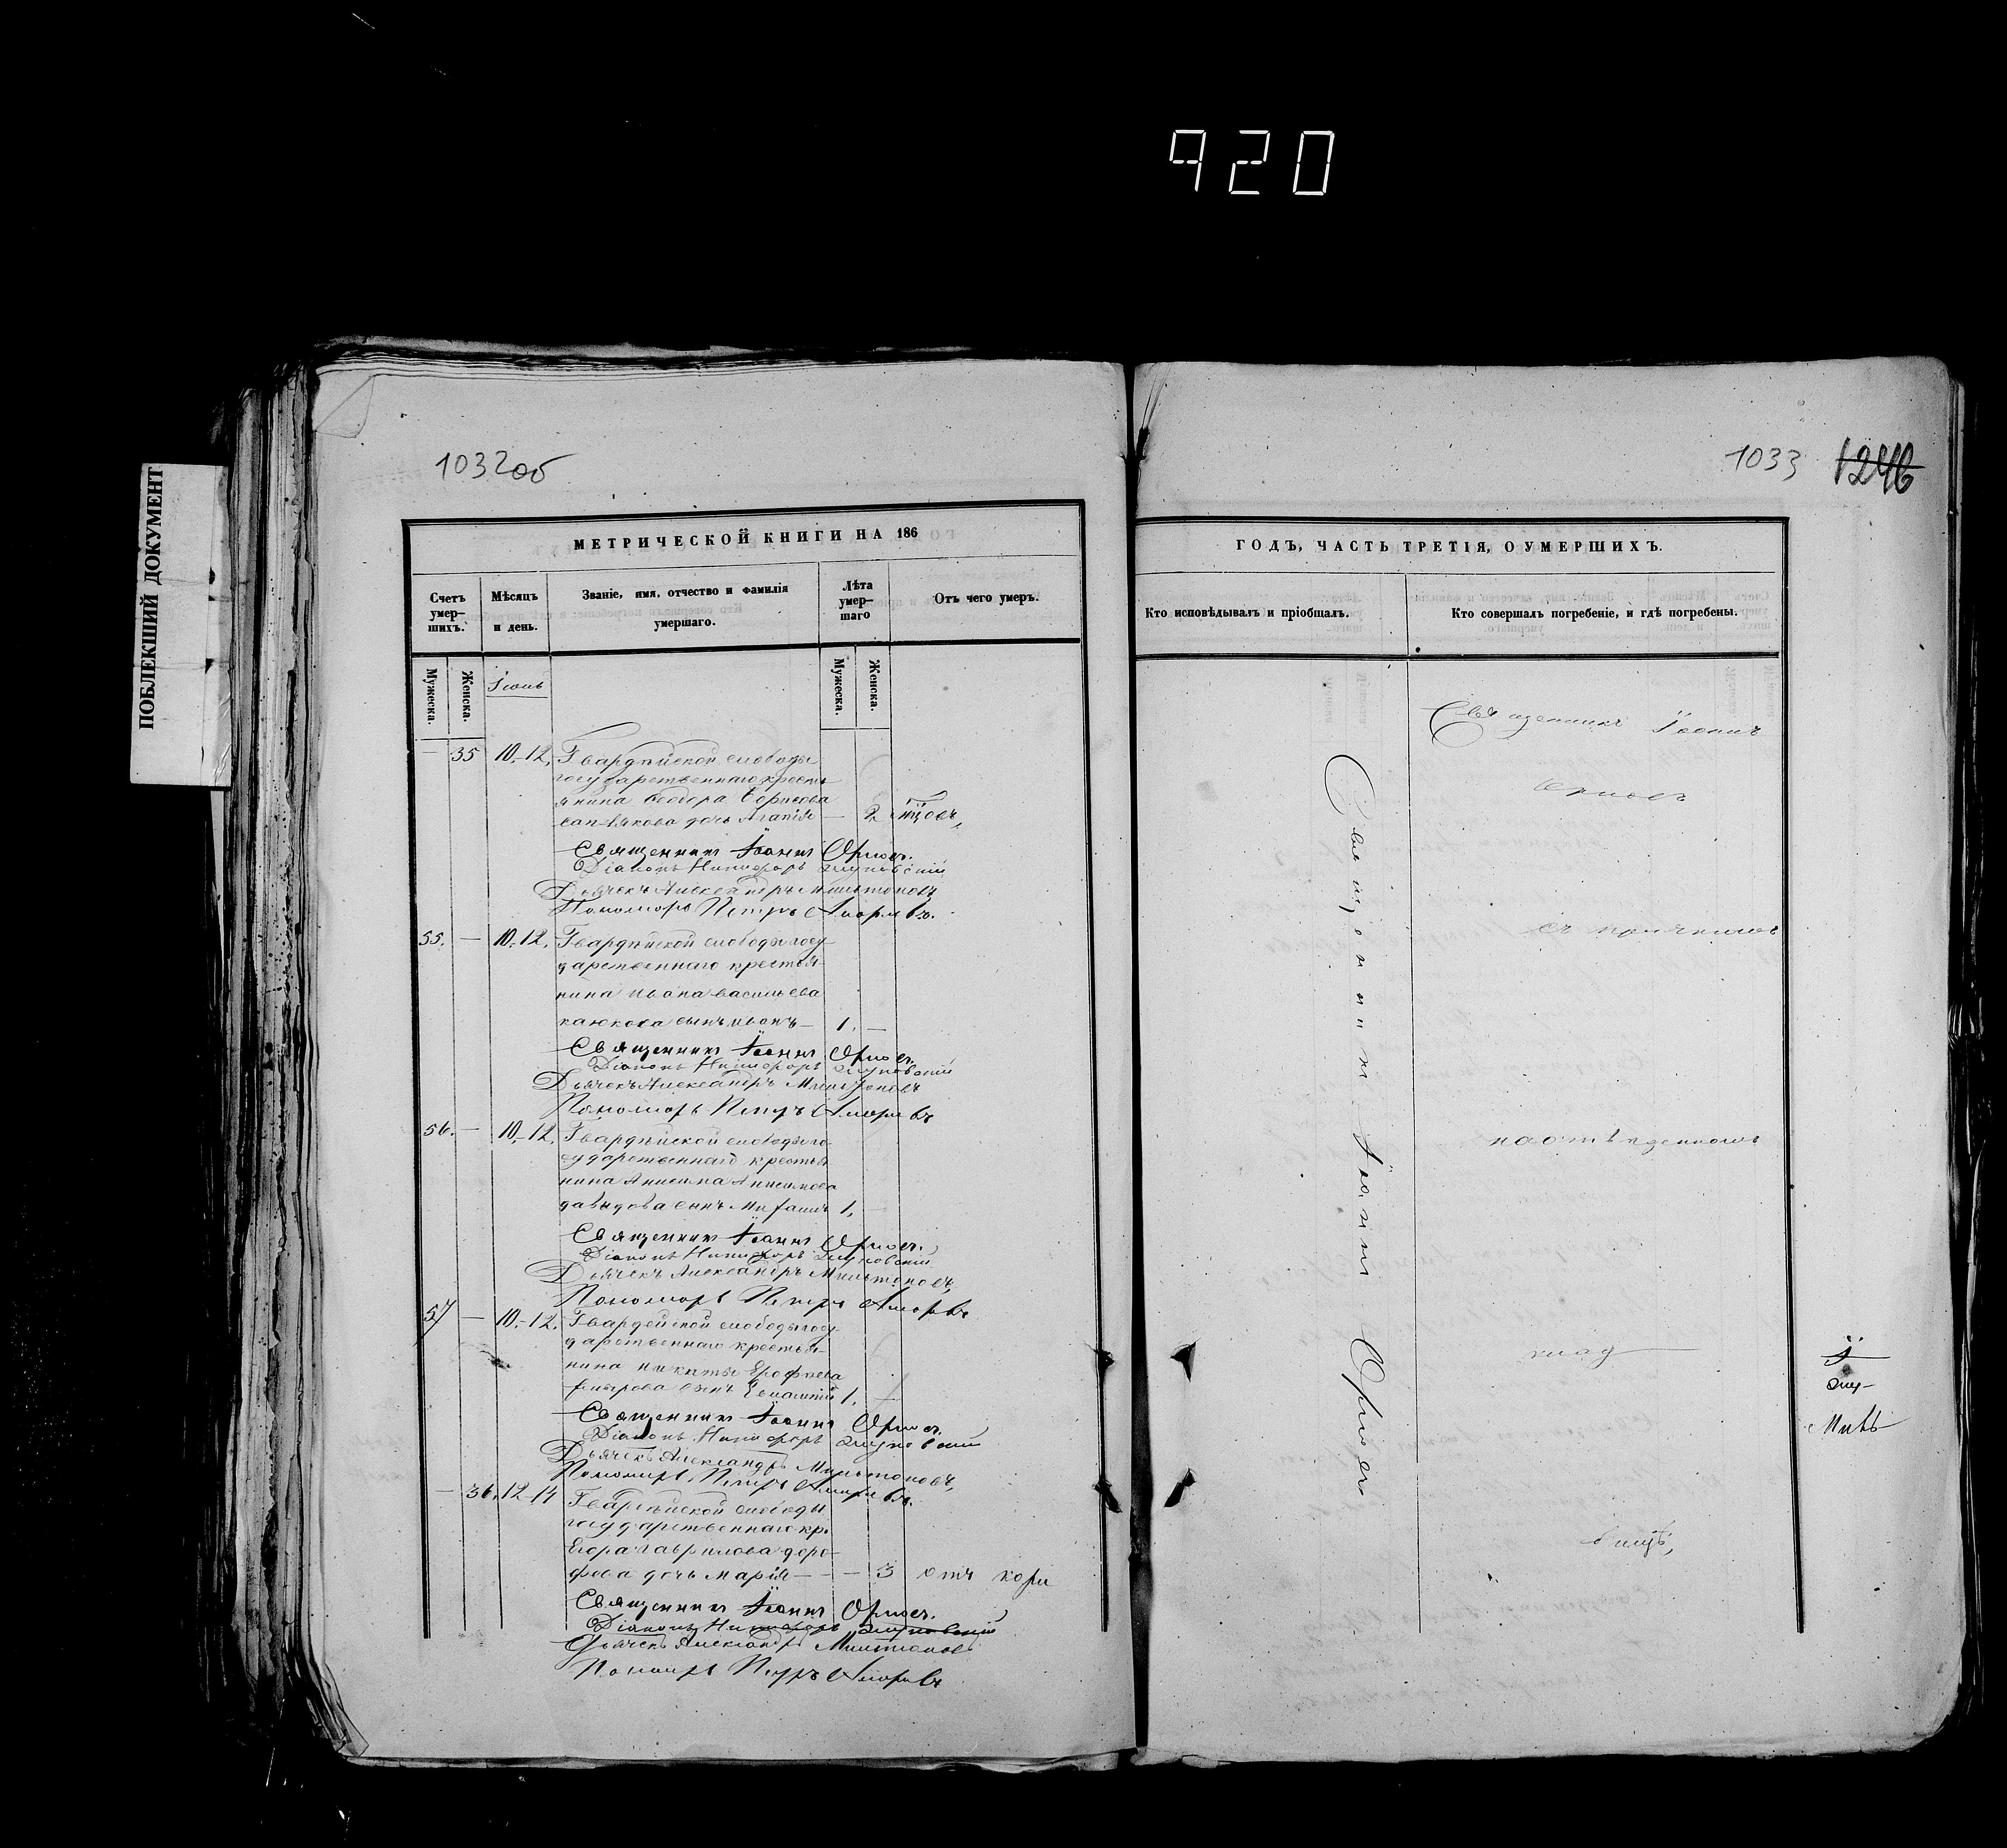 920
ПОБЛЕКШИЙ ДОКУМЕНТ
1032об
МЕТРИЧЕСКОЙ КНИГИ НА 186
Счетъ умер–шихъ.
Мѣсяцъ и день.
Званіе, имя, отчество и фамилія умершаго.
Лѣта умер–шаго
Отъ чего умеръ.
Мужеска.
Женска.
Мужеска.
Женска.
Іюнь
— 35 10–12, Гвардѣйской слободы
государственнаго кресть
янина Ѳеодора Борисова
дочь Агапія — 2
Священникъ Іоаннъ Орловъ.
Діаконъ Никифоръ
Дьячекъ Александръ Мильтоновъ
Пономарь Петръ
55. — 10–12, Гвардѣйской слободы госу
дарственнаго крестья
нина Ивана Васильева
каюкова сынъ Иванъ — 1, —
Священникъ Іоаннъ Орловъ.
Діаконъ Никифоръ
Дьячекъ Александръ Мильтоновъ
Пономарь Петръ
56. — 10–12, Гвардѣйской слободы го
сударственнаго крестья
нина Анисима Анисимова
давыдова сынъ 1, —
Священникъ Іоаннъ Орловъ.
Діаконъ Никифоръ
Дьячекъ Александръ Мильтоновъ,
Пономарь Петръ
57 — 10–12. Гвардейской слободы госу
дарственнаго крестья
нина Никиты Ерофѣева
сынъ 1, —
Священникъ Іоаннъ Орловъ.
Діаконъ Никифоръ
Дьячекъ Александръ Мильтоновъ,
Пономарь Петръ
— 36, 12–14 Гвардѣйской слободы
государственнаго кр.
Егора Гаврилова доро
фѣева дочь Марія — — — 3 отъ кори
Священникъ Іоаннъ Орловъ.
Діаконъ Никифоръ
Дьячекъ Александръ Мильтоновъ
Пономарь Петръ
1033 1246
ГОДЪ, ЧАСТЬ ТРЕТІЯ, О УМЕРШИХЪ.
Кто исповѣдывалъ и пріобщалъ.
Кто совершалъ погребеніе, и гдѣ погребены.
Священникъ Іоаннъ Орловъ
Священникъ Іоаннъ
Орловъ
съ причтомъ
на отведенномъ
клад
бищѣ,